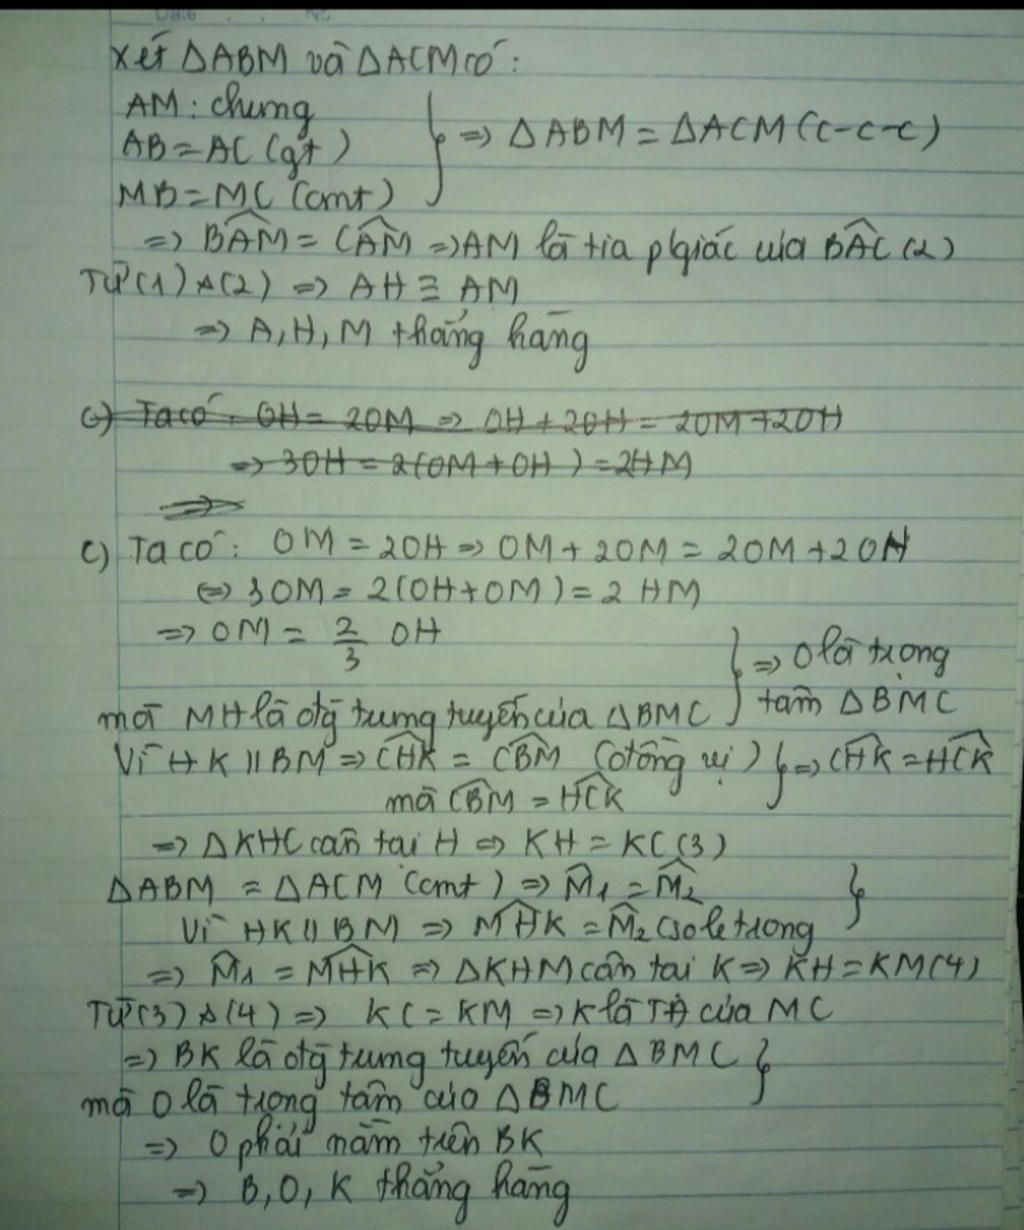 Date No.
Xét ΔABM và ΔACM có:
AM: chung
AB = AC (gt) } => ΔABM = ΔACM (c-c-c)
MB = MC (cmt)
=> BÂM = CÂM => AM là tia pgiác của BÂC (2)
Từ (1) & (2) => AH ≡ AM
=> A, H, M thẳng hàng
c) Ta có: OH = 2OM => OH + 2OH = 2OM + 2OH
=> 3OH = 2(OM + OH) = 2HM
=>
c) Ta có: OM = 2OH => OM + 2OM = 2OM + 2OH
<=> 3OM = 2(OH + OM) = 2HM
=> OM = 2/3 OH
} => O là trọng
mà MH là đg trung tuyến của ΔBMC } tâm ΔBMC
Vì HK // BM => CĤK = CB̂M (đồng vị) } => CĤK = HĈK
mà CB̂M = HĈK
=> ΔKHC cân tại H => KH = KC (3)
ΔABM = ΔACM (cmt) => M̂1 = M̂2 }
Vì HK // BM => MĤK = M̂2 (sole trong
=> M̂1 = MĤK => ΔKHM cân tại K => KH = KM (4)
Từ (3) & (4) => KC = KM => K là TĐ của MC
=> BK là đg trung tuyến của ΔBMC }
mà O là trọng tâm của ΔBMC
=> O phải nằm trên BK
=> B, O, K thẳng hàng